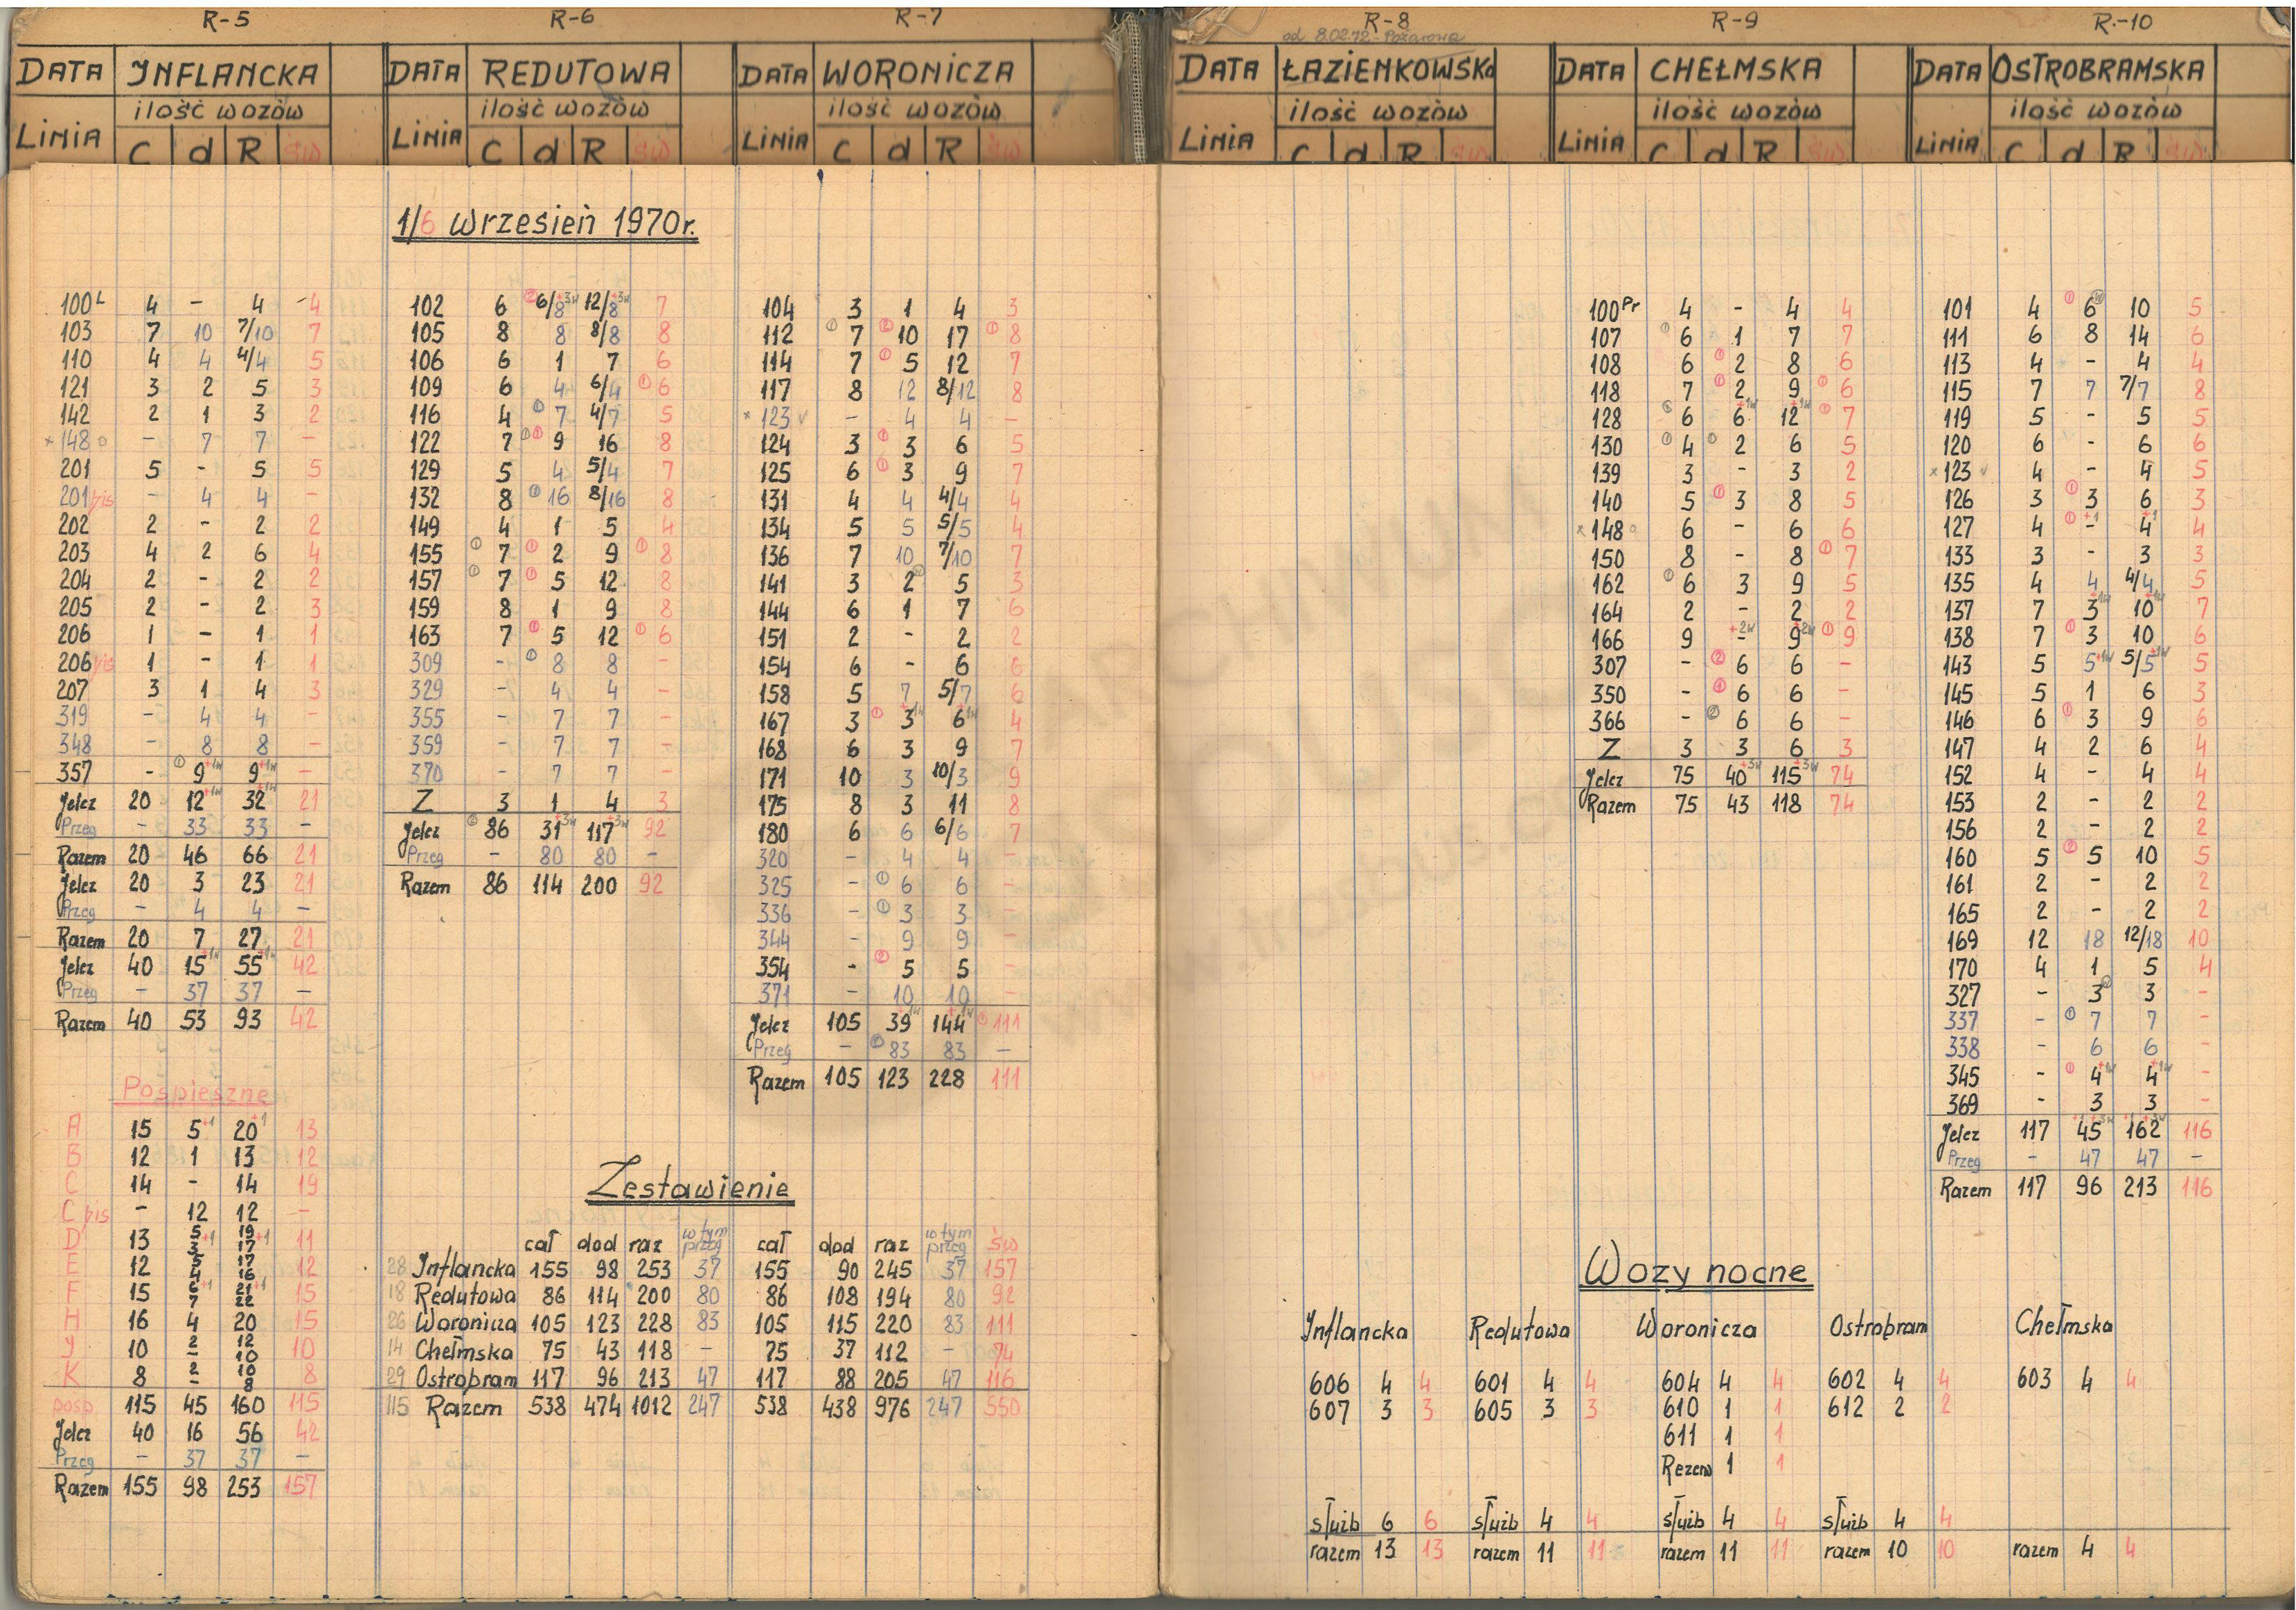 R-5
DATA INFLANCKA
ilość wozów
LINIA C d R św
100L 4 – 4 4
103 7 10 7/10 7
110 4 4 4/4 5
121 3 2 5 3
142 2 1 3 2
×148○ – 7 7 –
201 5 - 5 5
201 bis – 4 4 –
202 2 - 2 2
203 4 2 6 4
204 2 - 2 2
205 2 - 2 3
206 1 – 1 1
206 bis 1 - 1 1
207 3 1 4 3
319 – 4 4 –
348 – 8 8 –
357 - ① 9+1w 9+1w –
Jelcz 20 12+1w 32+1w 21
Przeg – 33 33 –
Razem 20 46 66 21
Jelcz 20 3 23 21
Przeg – 4 4 –
Razem 20 7 27 21
Jelcz 40 15+1w 55+1w 42
Przeg – 37 37 –
Razem 40 53 93 42
Pospieszne
A 15 5+1 20+1 13
B 12 1 13 12
C 14 - 14 19
C bis - 12 12 –
D 13 5/3+1 19/17+1 11
E 12 5/4 17/16 12
F 15 6/7+1 21/22+1 15
H 16 4 20 15
J 10 2/- 12/10 10
K 8 2/- 10/8 8
posp. 115 45 160 115
Jelcz 40 16 56 42
Przeg – 37 37 –
Razem 155 98 253 157
R-6
DATA REDUTOWA
ilość wozów
LINIA C d R św
1/6 Wrzesień 1970r.
102 6 ② 6/8+3w 12/8+3w 7
105 8 8 8/8 8
106 6 1 7 6
109 6 4 6/4 ① 6
116 4 ① 7 4/7 5
122 7 ①① 9 16 8
129 5 4 5/4 7
132 8 ① 16 8/16 8
149 4 1 5 4
155 ① 7 ① 2 9 ① 8
157 ① 7 ① 5 12 8
159 8 1 9 8
163 7 ① 5 12 ① 6
309 - ① 8 8 –
329 - 4 4 –
355 - 7 7 –
359 - 7 7 –
370 - 7 7 –
Z 3 1 4 3
Jelcz ② 86 31+3w 117+3w 92
Przeg – 80 80 –
Razem 86 114 200 92
R-7
DATA WORONICZA
ilość wozów
LINIA C d R św
104 3 1 4 3
112 ① 7 ② 10 17 ① 8
114 7 ① 5 12 7
117 8 12 8/12 8
×123 v – 4 4 –
124 3 ① 3 6 5
125 6 ① 3 9 7
131 4 4 4/4 4
134 5 5 5/5 4
136 7 10 7/10 7
141 3 2 ⓦ 5 3
144 6 1 7 6
151 2 - 2 2
154 6 - 6 6
158 5 7 5/7 6
167 3 ① 3+1w 6+1w 4
168 6 3 9 7
171 10 3 10/3 9
175 8 3 11 8
180 6 6 6/6 7
320 – 4 4 –
325 - ① 6 6 –
336 - ① 3 3 –
344 - 9 9 –
354 - ② 5 5 –
371 – 10 10 –
Jelcz 105 39+1w 144+1w ① 111
Przeg – ② 83 83 –
Razem 105 123 228 111
Zestawienie
cał dod raz w tym przeg cał dod raz w tym przeg św
28 Inflancka 155 98 253 37 155 90 245 37 157
18 Redutowa 86 114 200 80 86 108 194 80 92
26 Woronicza 105 123 228 83 105 115 220 83 111
14 Chełmska 75 43 118 – 75 37 112 – 74
29 Ostrobram 117 96 213 47 117 88 205 47 116
115 Razem 538 474 1012 247 538 438 976 247 550
R-8
od 8.02.72 - Pożarowa
DATA ŁAZIENKOWSKa
ilość wozów
LINIA C d R św
R-9
DATA CHEŁMSKA
ilość wozów
LINIA C d R św
100Pr 4 - 4 4
107 ① 6 1 7 7
108 6 ① 2 8 6
118 7 ① 2 9 ① 6
128 ① 6 6+1w 12+1w ① 7
130 ① 4 ① 2 6 5
139 3 - 3 2
140 5 ① 3 8 5
×148○ 6 - 6 6
150 8 - 8 ① 7
162 ① 6 3 9 5
164 2 - 2 2
166 9 -+2w 9+2w ① 9
307 - ② 6 6 –
350 - ① 6 6 –
366 - ② 6 6 –
Z 3 3 6 3
Jelcz 75 40+3w 115+3w 74
Razem 75 43 118 74
R.-10
DATA OSTROBRAMSKA
ilość wozów
LINIA C d R św
101 4 ① 6 ⓦ 10 5
111 6 8 14 6
113 4 - 4 4
115 7 7 7/7 8
119 5 - 5 5
120 6 - 6 6
×123 v 4 - 4 5
126 3 ① 3 6 3
127 4 ① -+1 4+1 4
133 3 - 3 3
135 4 4 4/4 5
137 7 3+1w 10+1w 7
138 7 ① 3 10 6
143 5 5+1w 5/5+1w 5
145 5 1 6 3
146 6 ① 3 9 6
147 4 2 6 4
152 4 - 4 4
153 2 - 2 2
156 2 - 2 2
160 5 ② 5 10 5
161 2 - 2 2
165 2 - 2 2
169 12 18 12/18 10
170 4 1 5 4
327 - 3 ⓦ 3 -
337 - ① 7 7 -
338 - 6 6 -
345 - ① 4+1w 4+1w -
369 - 3 3 -
Jelcz 117 45+1+3w 162+1+3w 116
Przeg – 47 47 –
Razem 117 96 213 116
Wozy nocne
Inflancka Redutowa Woronicza Ostrobram Chełmska
606 4 4 601 4 4 604 4 4 602 4 4 603 4 4
607 3 3 605 3 3 610 1 1 612 2 2
611 1 1
Rezerw 1 1
służb 6 6 służb 4 4 służb 4 4 służb 4 4
razem 13 13 razem 11 11 razem 11 11 razem 10 10 razem 4 4